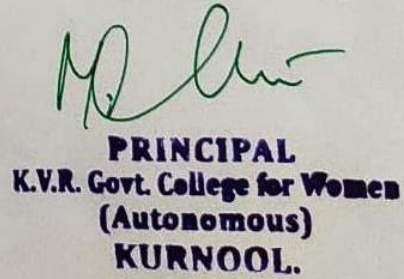 PRINCIPAL
K.V.R. Govt. College for Women
(Autonomous)
KURNOOL.